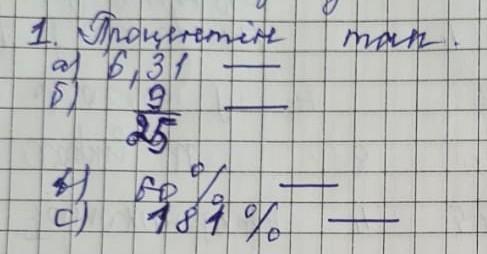 1. Процентін тап.
а) 6,31 —
б) 9/25 —
в) 60% —
с) 181% —